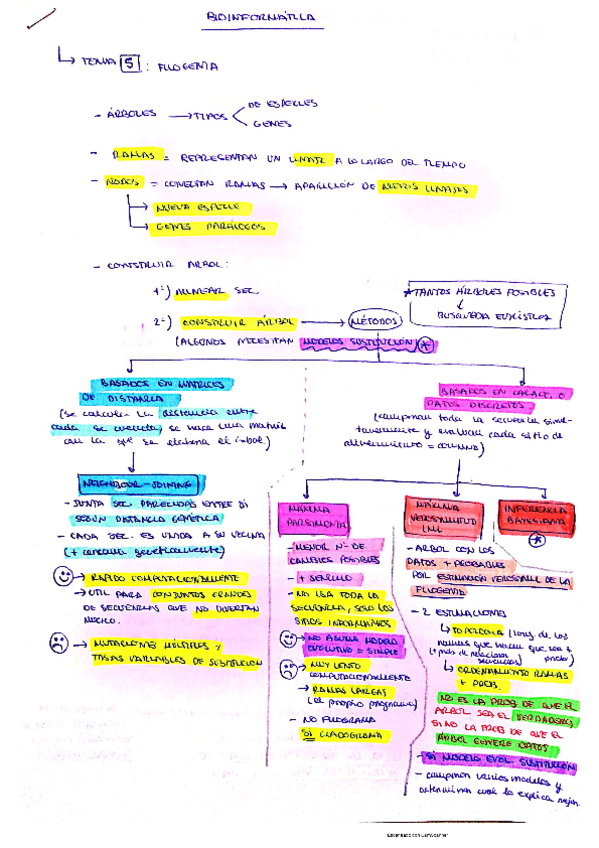 BIOINFORMÁTICA
TEMA 5: FILOGENIA
- ÁRBOLES → TIPOS
DE ESPECIES
GENES
- RAMAS = REPRESENTAN UN LINAJE A LO LARGO DEL TIEMPO
- NODOS = CONECTAN RAMAS → APARICIÓN DE NUEVOS LINAJES
→ NUEVA ESPECIE
→ GENES PARÁLOGOS
- CONSTRUIR ARBOL:
1º) ALINEAR SEC.
2º) CONSTRUIR ÁRBOL → MÉTODOS
(ALGUNOS NECESITAN MODELOS SUSTITUCIÓN) *
* TANTOS ÁRBOLES POSIBLES
↓
BUSQUEDA EURÍSTICA
BASADOS EN MATRICES
DE DISTANCIA
(se calcula la distancia entre
cada se cuencia, se hace una matriz
con la que se elabora el árbol)
NEIGHBOUR-JOINING
- JUNTA SEC. PARECIDAS ENTRE SÍ
SEGÚN DISTANCIA GENÉTICA
- CADA SEC. ES UNIDA A SU VECINA
(+ cercana genéticamente)
→ RÁPIDO COMPUTACIONALMENTE
→ UTIL PARA CONJUNTOS GRANDES
DE SECUENCIAS QUE NO DIVERJAN
MUCHO.
→ MUTACIONES MÚLTIPLES Y
TASAS VARIABLES DE SUSTITUCIÓN
BASADOS EN CARACT. O
DATOS DISCRETOS.
(comparan toda la secuencia simul-
taneamente y evaluan cada sitio de
alineamiento = columna)
MÁXIMA
PARSIMONIA
- MENOR Nº DE
CAMBIOS POSIBLES
- + SENCILLO
- NO USA TODA LA
SECUENCIA, SOLO LOS
SITIOS INFORMATIVOS
→ NO ASUME MODELO
EVOLUTIVO = SIMPLE
→ MUY LENTO
COMPUTACIONALMENTE
→ RAMAS LARGAS
(el propio programa)
- NO FILOGRAMA
SI CLADOGRAMA
MÁXIMA
VEROSIMILITUD
(ML)
- ARBOL CON LOS
DATOS + PROBABLES
POR ESTIMACIÓN VEROSIMIL DE LA
FILOGENIA
- 2 ESTIMACIONES
↳ TOPOLOGIA
↳ ORDENAMIENTO RAMAS
+ PROB.
NO ES LA PROB DE QUE EL
ARBOL SEA EL VERDADERO,
SI NO LA PROB DE QUE EL
ÁRBOL GENERE DATOS
- SI MODELO EVOL. SUSTITUCIÓN
- comparan varios modelos y
determinan cual lo explica mejor.
INFERENCIA
BAYESIANA
*
Escaneado con CamScanner